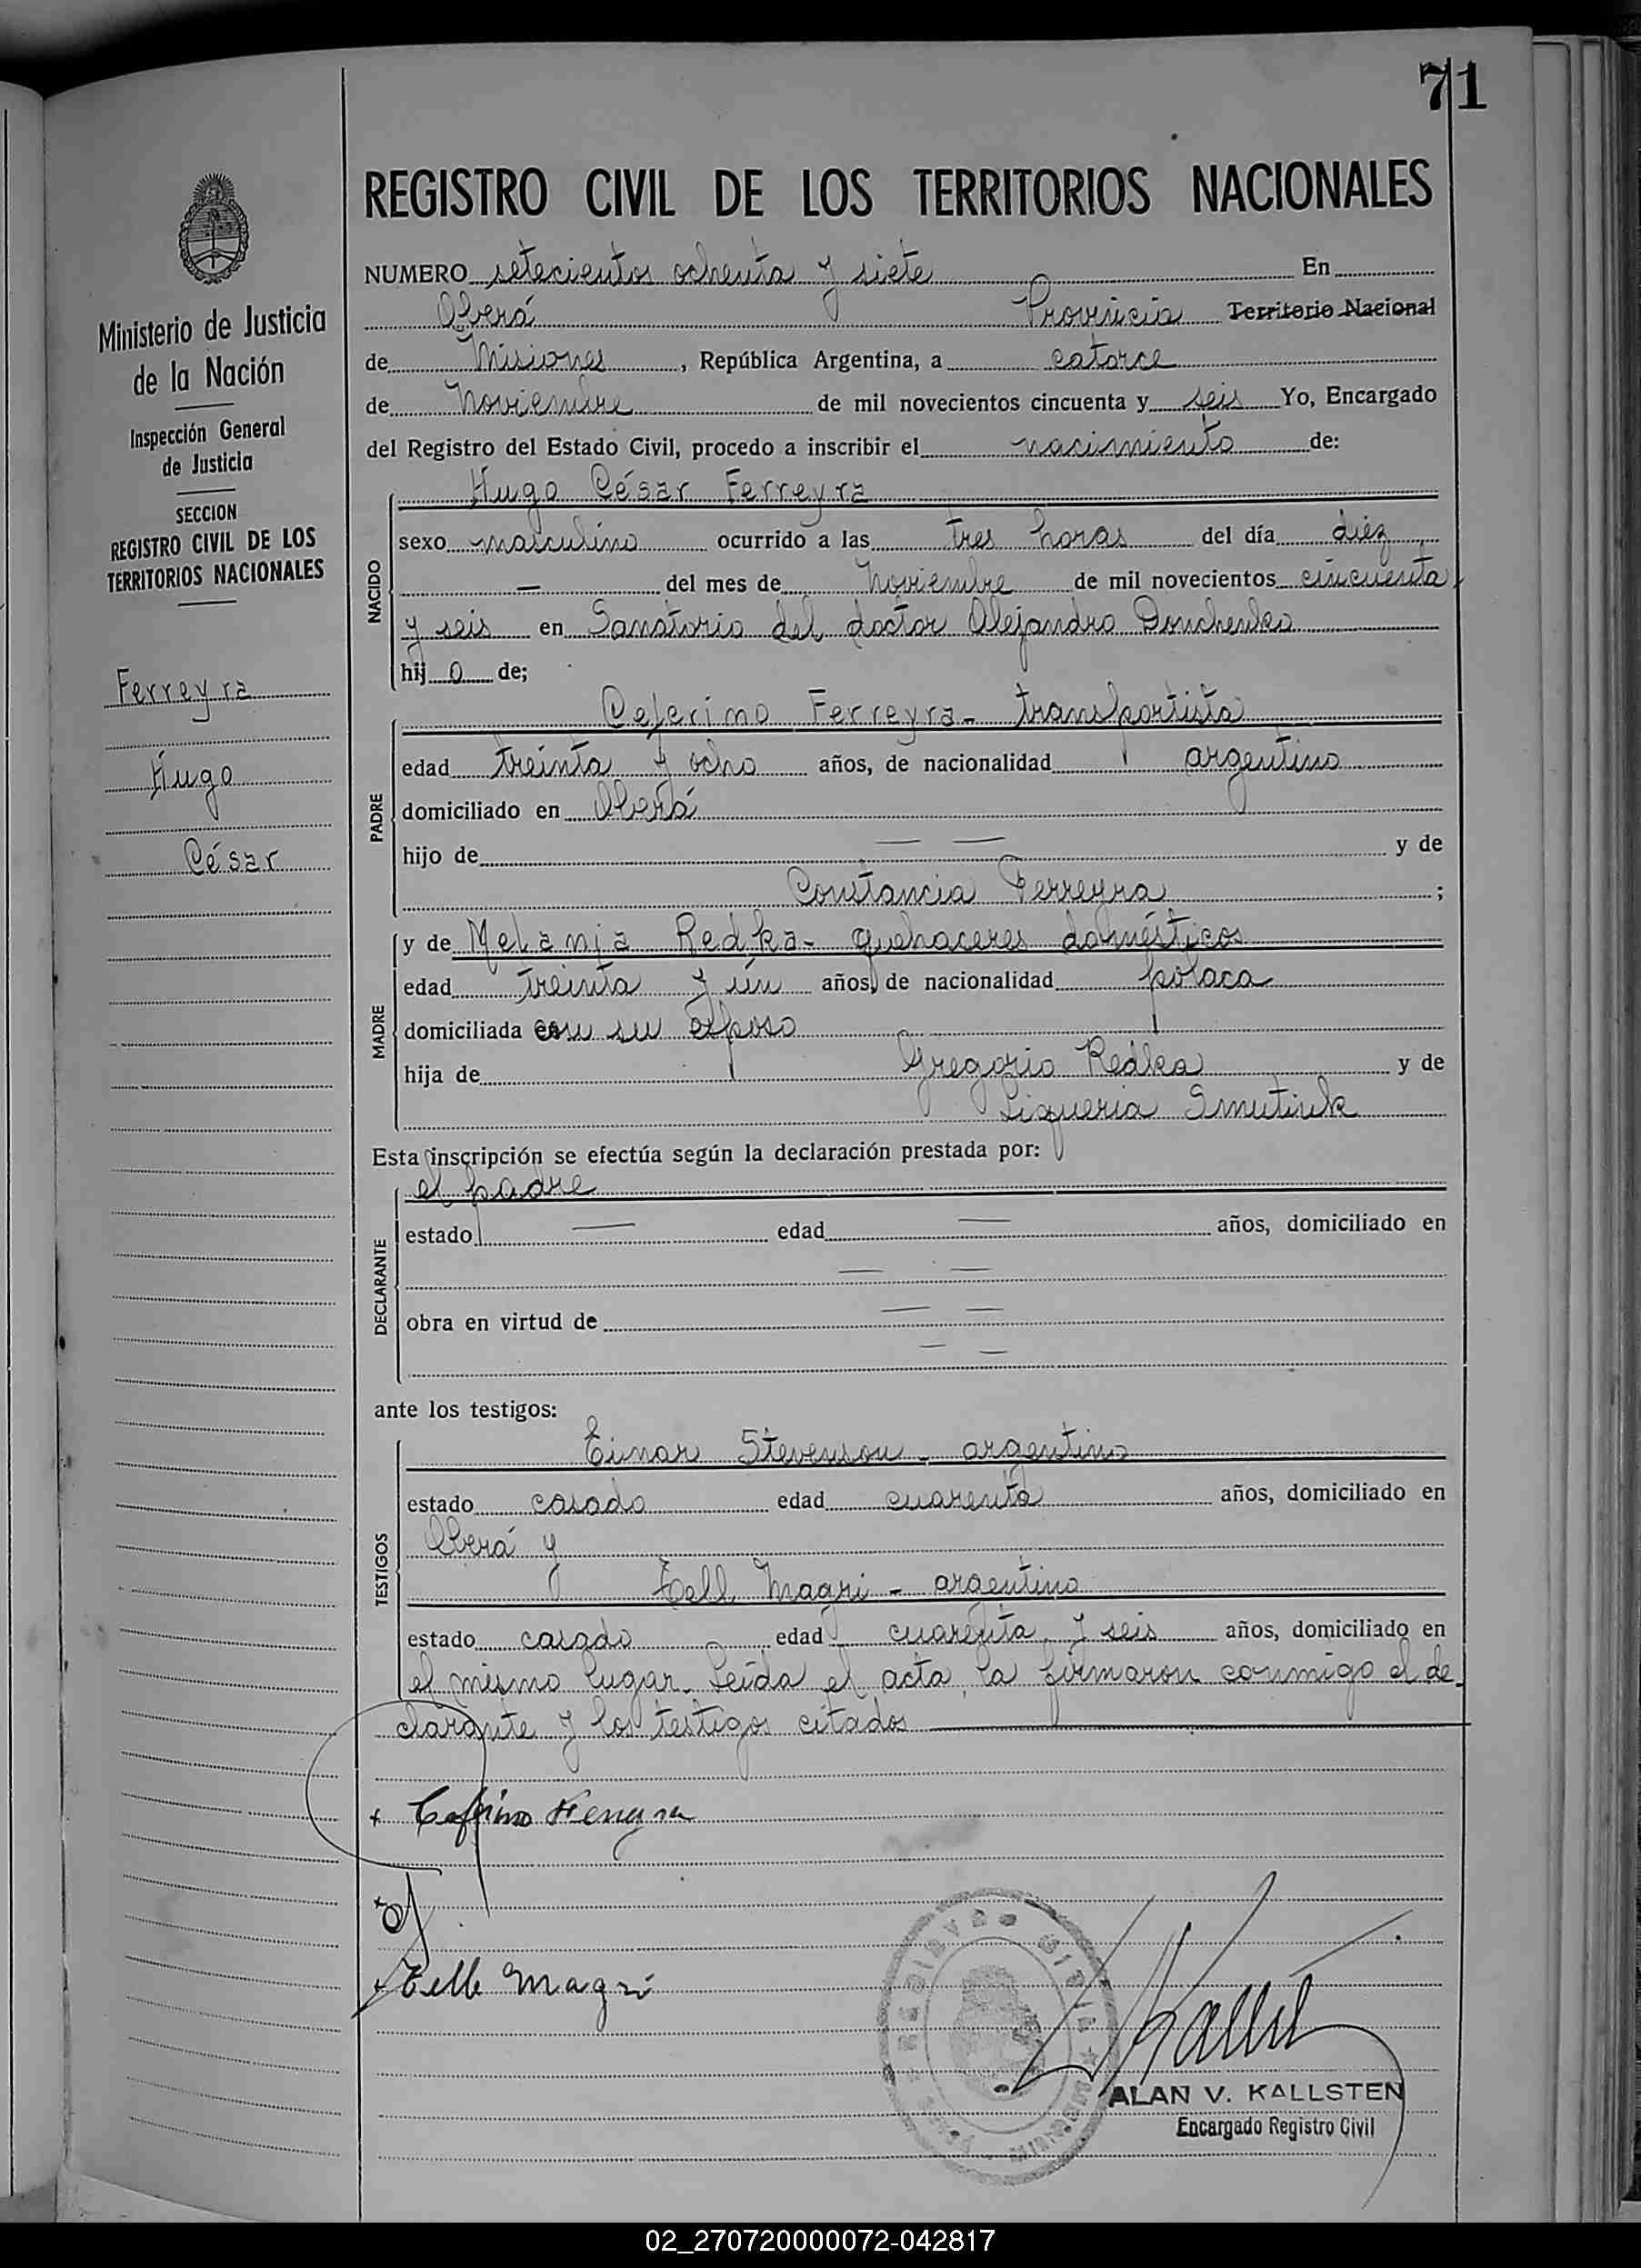 71
REGISTRO CIVIL DE LOS TERRITORIOS NACIONALES
Ministerio de Justicia
de la Nación
Inspección General
de Justicia
SECCION
REGISTRO CIVIL DE LOS
TERRITORIOS NACIONALES
Ferreyra
Hugo
César
NUMERO setecientos ochenta y siete En
Oberá Provincia Territorio Nacional
de Misiones, República Argentina, a catorce
de Noviembre de mil novecientos cincuenta y seis Yo, Encargado
del Registro del Estado Civil, procedo a inscribir el nacimiento de:
NACIDO
Hugo César Ferreyra
sexo masculino ocurrido a las tres horas del día diez
— del mes de Noviembre de mil novecientos cincuenta
y seis en Sanatorio del doctor Alejandro Donchenko
hijo de;
PADRE
Ceferino Ferreyra - transportista
edad treinta y ocho años, de nacionalidad argentino
domiciliado en Oberá
hijo de — — y de
Constancia Ferreyra ;
MADRE
y de Melania Redka - quehaceres domésticos
edad treinta y ún años, de nacionalidad polaca
domiciliada con su esposo
hija de Gregorio Redka y de
Smutiuk
Esta inscripción se efectúa según la declaración prestada por:
DECLARANTE
el padre
estado — edad — años, domiciliado en
— —
obra en virtud de — —
— —
ante los testigos:
TESTIGOS
Einar Stevenson - argentino
estado casado edad cuarenta años, domiciliado en
Oberá y
Tell Magri - argentino
estado casado edad cuarenta y seis años, domiciliado en
el mismo lugar. Leída el acta, la firmaron conmigo el de-
clarante y los testigos citados
+ Ceferino Ferreyra
+ Telle Magri
ALAN V. KALLSTEN
Encargado Registro Civil
02_270720000072-042817